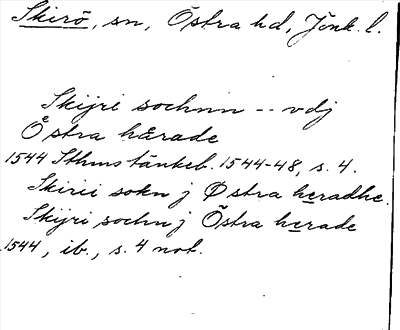 Skirö, sn, Östra hd, Jönk. l.
Skijri sochnn -- vdj
Östra hårade
1544 Sthms tänkeb. 1544-48, s. 4.
Skirii sokn j Østra heradhe.
Skijri sochn j Östra herade
1544, ib., s. 4 not.